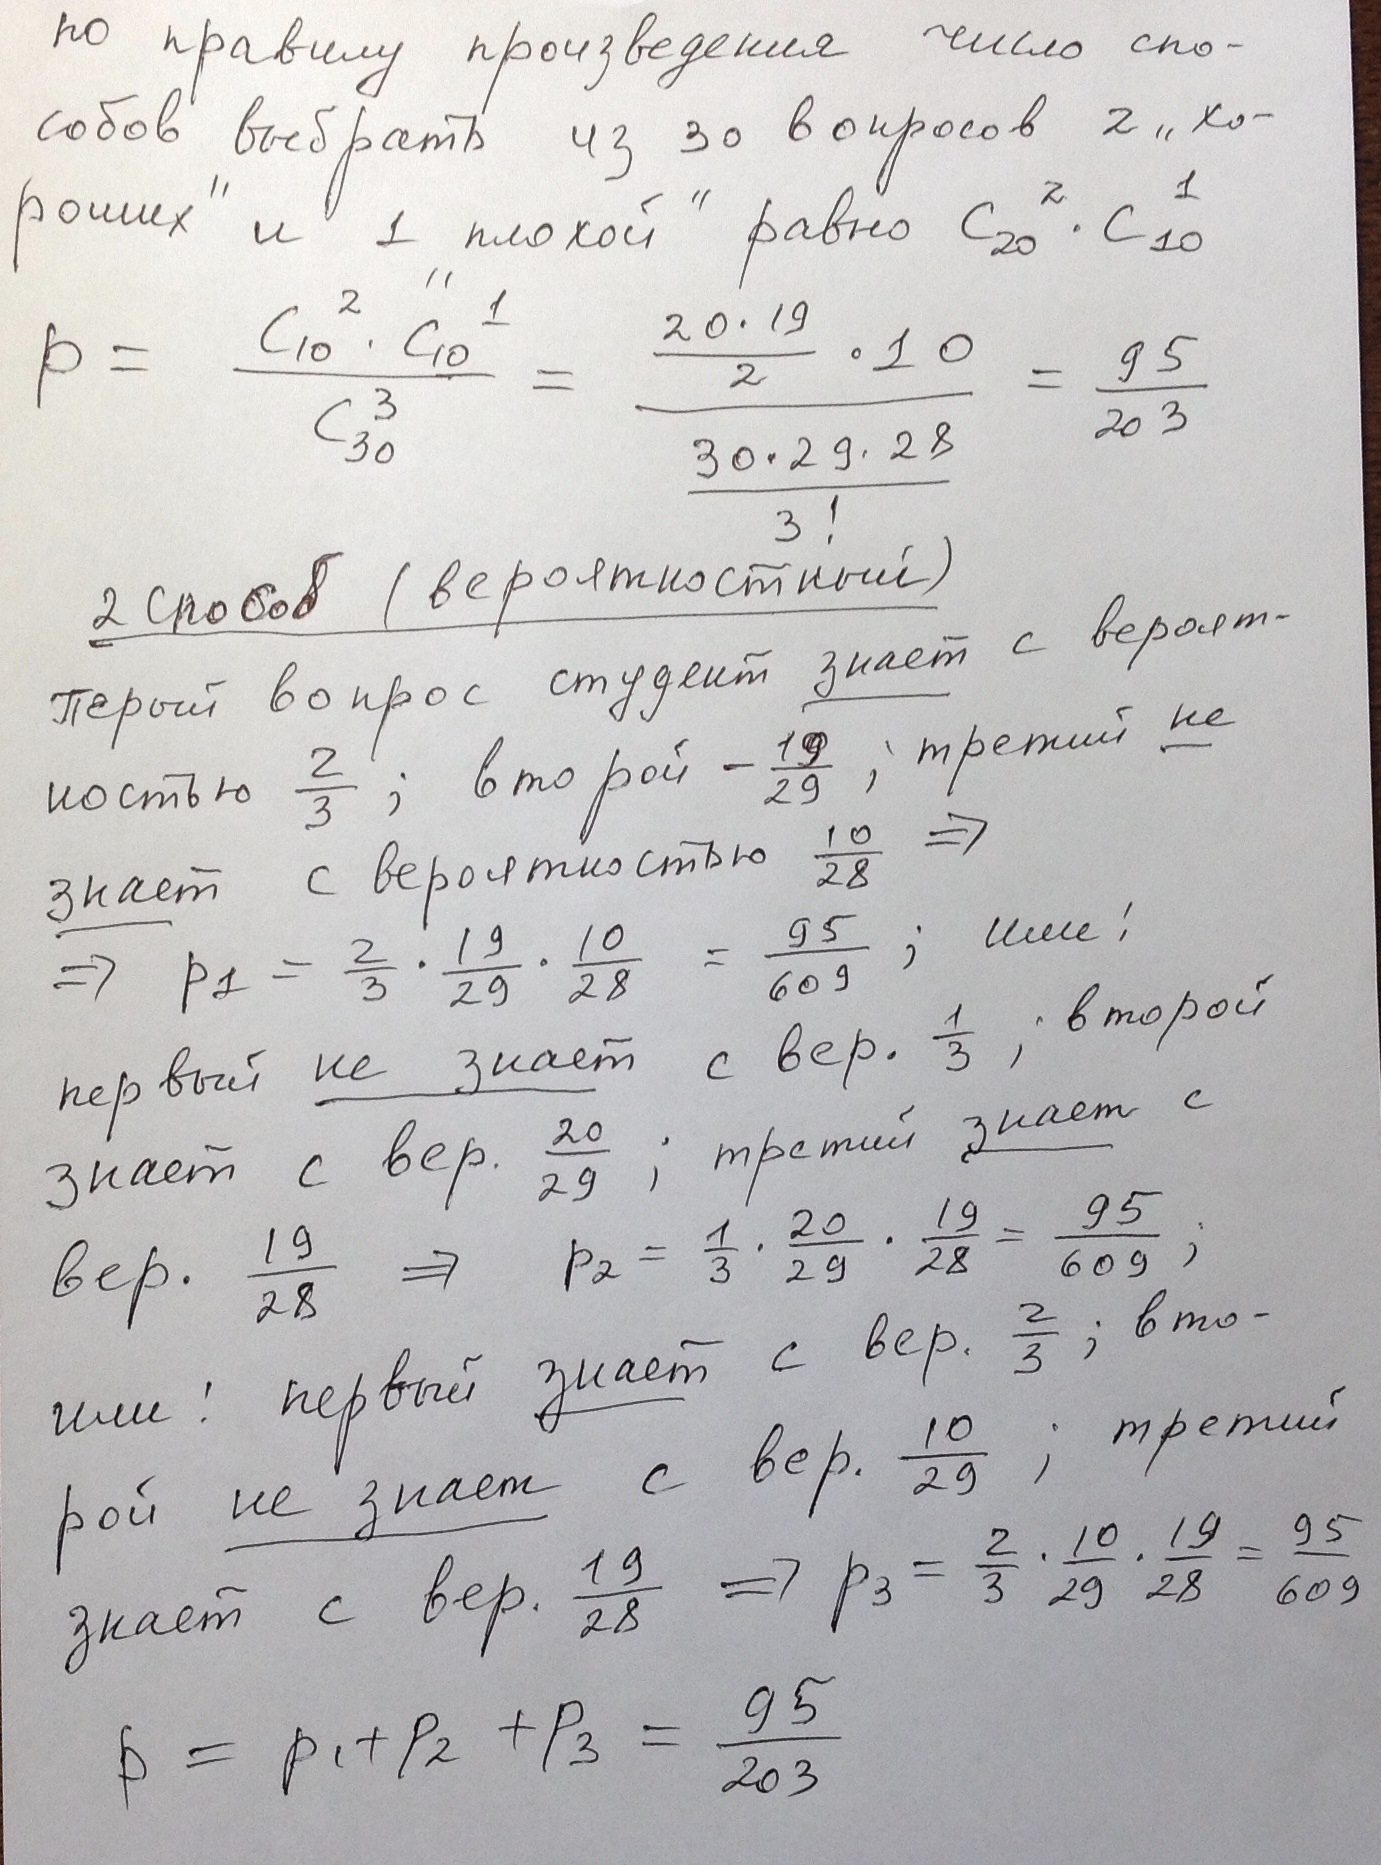 по правилу произведения число спо-
собов выбрать из 30 вопросов 2 „хо-
роших" и 1 „плохой" равно C₂₀² · C₁₀¹
p = (C₁₀² · C₁₀¹) / C₃₀³ = (20·19/2 · 10) / (30·29·28/3!) = 95/203
2 способ (вероятностный)
Перый вопрос студент знает с вероят-
ностью 2/3 ; второй – 19/29 ; третий не
знает с вероятностью 10/28 ⇒
⇒ p1 = 2/3 · 19/29 · 10/28 = 95/609 ; или!
первый не знает с вер. 1/3 ; второй
знает с вер. 20/29 ; третий знает с
вер. 19/28 ⇒ p2 = 1/3 · 20/29 · 19/28 = 95/609 ;
или! первый знает с вер. 2/3 ; вто-
рой не знает с вер. 10/29 ; третий
знает с вер. 19/28 ⇒ p3 = 2/3 · 10/29 · 19/28 = 95/609
p = p1 + p2 + p3 = 95/203